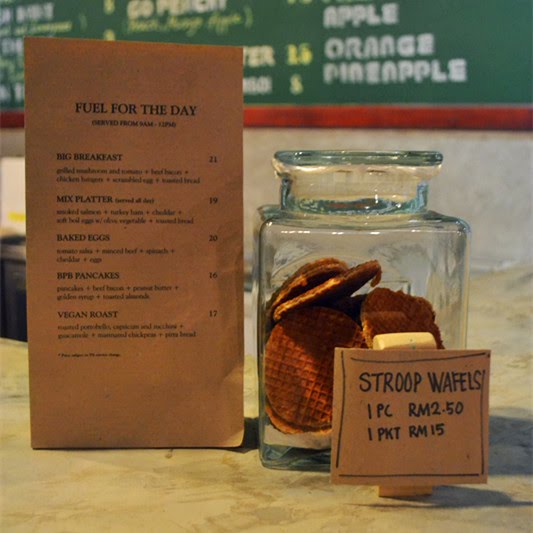 GO PEACHY
APPLE
15 ORANGE
PINEAPPLE
FUEL FOR THE DAY
(SERVED FROM 9AM - 12PM)
BIG BREAKFAST 21
grilled mushroom and tomato + beef bacon +
chicken bangers + scrambled egg + toasted bread
MIX PLATTER (served all day) 19
smoked salmon + turkey ham + cheddar +
soft boil eggs w/ olive vegetable + toasted bread
BAKED EGGS 20
tomato salsa + minced beef + spinach +
cheddar + eggs
BPB PANCAKES 16
pancakes + beef bacon + peanut butter +
golden syrup + toasted almonds
VEGAN ROAST 17
roasted portobello, capsicum and zucchini +
guacamole + marinated chickpeas + pitta bread
STROOP WAFELS!
1 PC RM2.50
1 PKT RM15